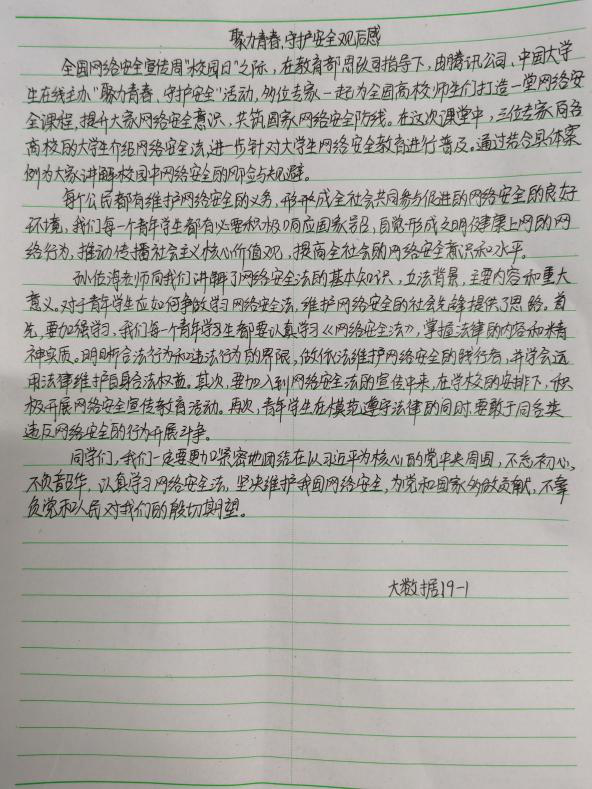 聚力青春,守护安全观后感
全国网络安全宣传周"校园日"之际,在教育部思政司指导下,由腾讯公司、中国大学
生在线主办"聚力青春、守护安全"活动,多位专家一起为全国高校师生们打造一堂网络安
全课程,提升大家网络安全意识、共筑国家网络安全防线。在这次课堂中,三位专家同各
高校的大学生介绍网络安全法,进一步针对大学生网络安全教育进行普及。通过结合具体案
例为大家讲解校园中网络安全的风险与规避。
每个公民都有维护网络安全的义务,形形成全社会共同参与促进的网络安全的良好
环境,我们每一个青年学生都有必要积极响应国家号召,自觉形成文明健康上网的网
络行为,推动传播社会主义核心价值观,提高全社会的网络安全意识和水平。
孙佑海老师向我们讲解了网络安全法的基本知识,立法背景,主要内容和重大
意义。对于青年学生应如何争做学习网络安全法,维护网络安全的社会先锋提供了思路。首
先,要加强学习,我们每一个青年学习生都要认真学习《网络安全法》,掌握法律的内容和精
神实质。明晰合法行为和违法行为的界限,做依法维护网络安全的践行者,并学会运
用法律维护自身合法权益。其次,要加入到网络安全法的宣传中来,在学校的安排下,积
极开展网络安全宣传教育活动。再次,青年学生在模范遵守法律的同时,要敢于同各类
违反网络安全的行为开展斗争。
同学们,我们一定要更加紧密地团结在以习近平为核心的党中央周围,不忘初心,
不负韶华,认真学习网络安全法,坚决维护我国网络安全,为党和国家多做贡献,不辜
负党和人民对我们的殷切期望。
大数据19-1